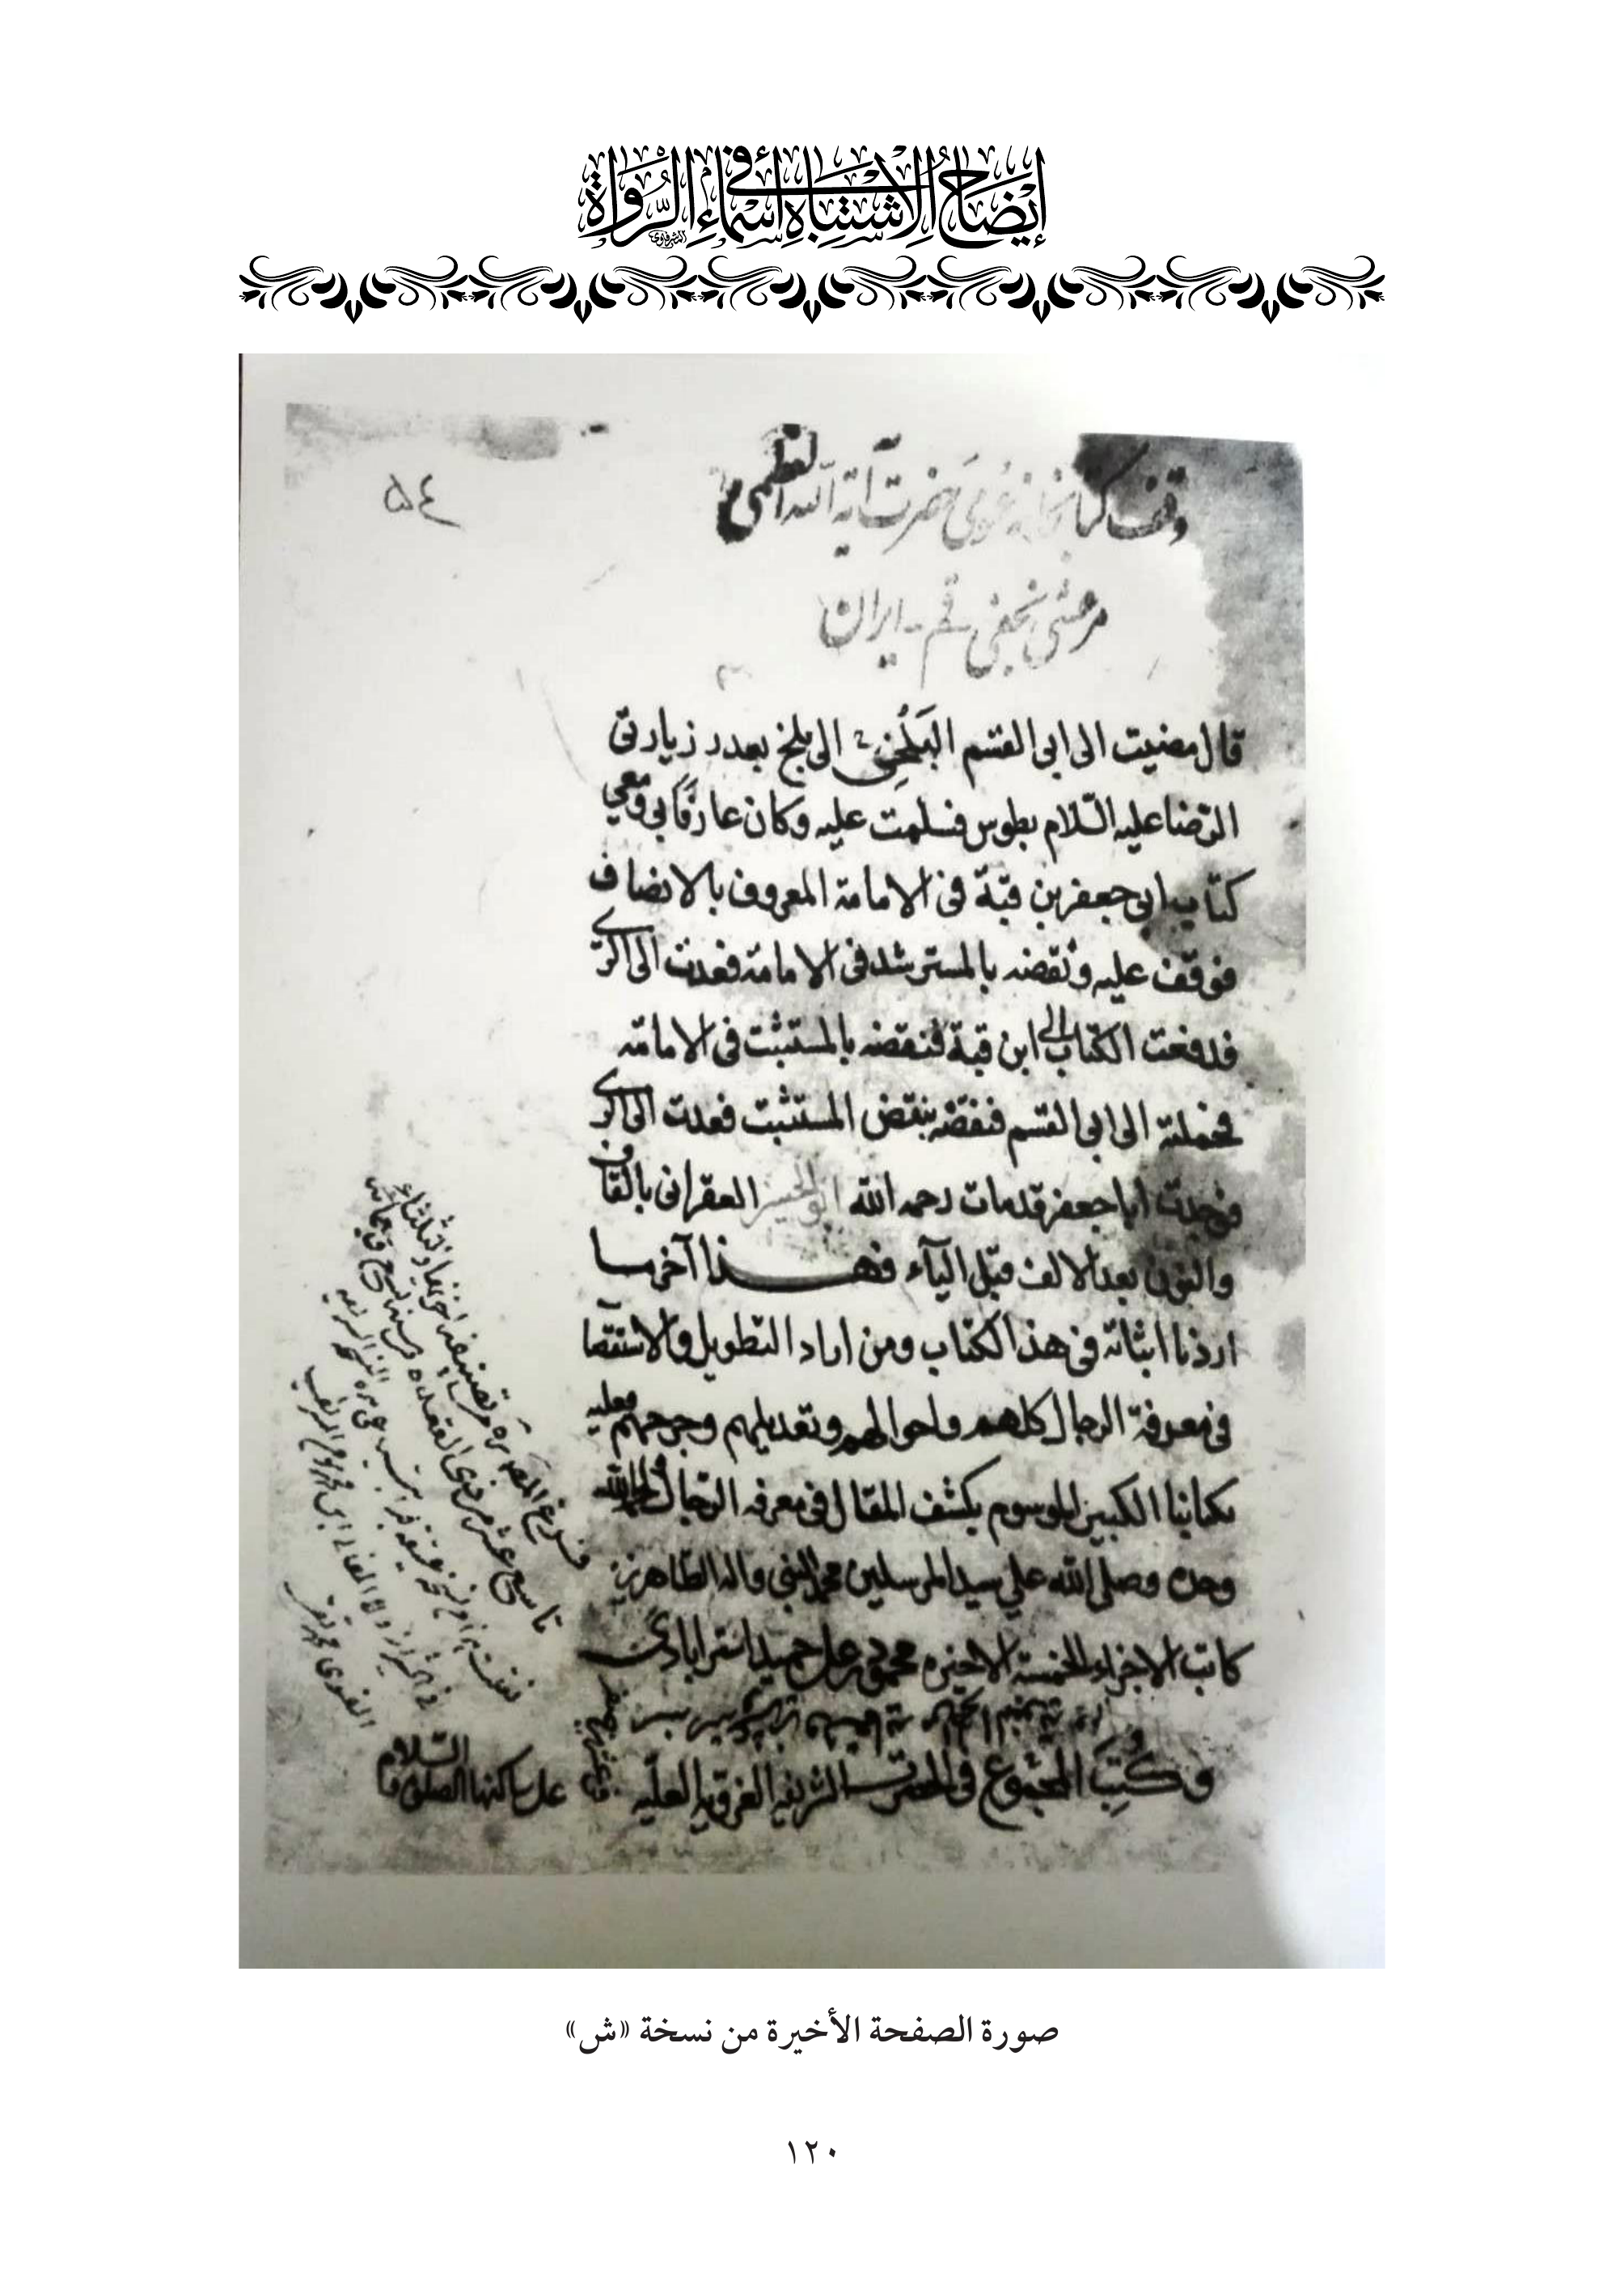 إيضاح الاشتباه في أسماء الرواة
وقف كتابخانه عمومی حضرت آية الله العظمی
مرعشی نجفی قم - ایران
٥٤
قال مضيت الى ابى القسم البَلْخِىّ الى بلخ بعد زيارتى
الرّضا عليه السّلام بطوس فسلمت عليه وكان عارفًا بي ومعي
كتاب ابى جعفر بن قبة فى الامامة المعروف بالانصاف
فوقف عليه ونقضه بالمسترشد فى الامامة فعدت الى الرّى
فدفعت الكتاب الى ابن قبة فنقضه بالمستثبت فى الامامة
فحملته الى ابى القسم فنقضه بنقض المستثبت فعدت الى الرى
فوجدت ابا جعفر قد مات رحمه الله ابو الحسين العقرانى بالقاف
والنون بعد الالف قبل الياء فهذا آخر ما
اردنا اثباته فى هذا الكتاب ومن اراد التطويل والاستقصا
فى معرفة الرجال كلهم واحوالهم وتعديلهم وجرحهم فعليه
بكتابنا الكبير الموسوم بكشف المقال فى معرفة الرّجال والحمد لله
وحده وصلى الله على سيد المرسلين محمد النبى واله الطاهرين
كاتب الاجزاء الخمسة الاخيره محمود بن على حميد استرابادى
وكُتِبَ المجموع فى الحضرت الشريفه الغرويه العليّه
على ساكنها الصلوة والسّلام
فرغ المص ره من تصنيفه
تاسع عشر من ذى القعده من سنة سبع وسبعمائة
صورة الصفحة الأخيرة من نسخة «ش»
١٢٠